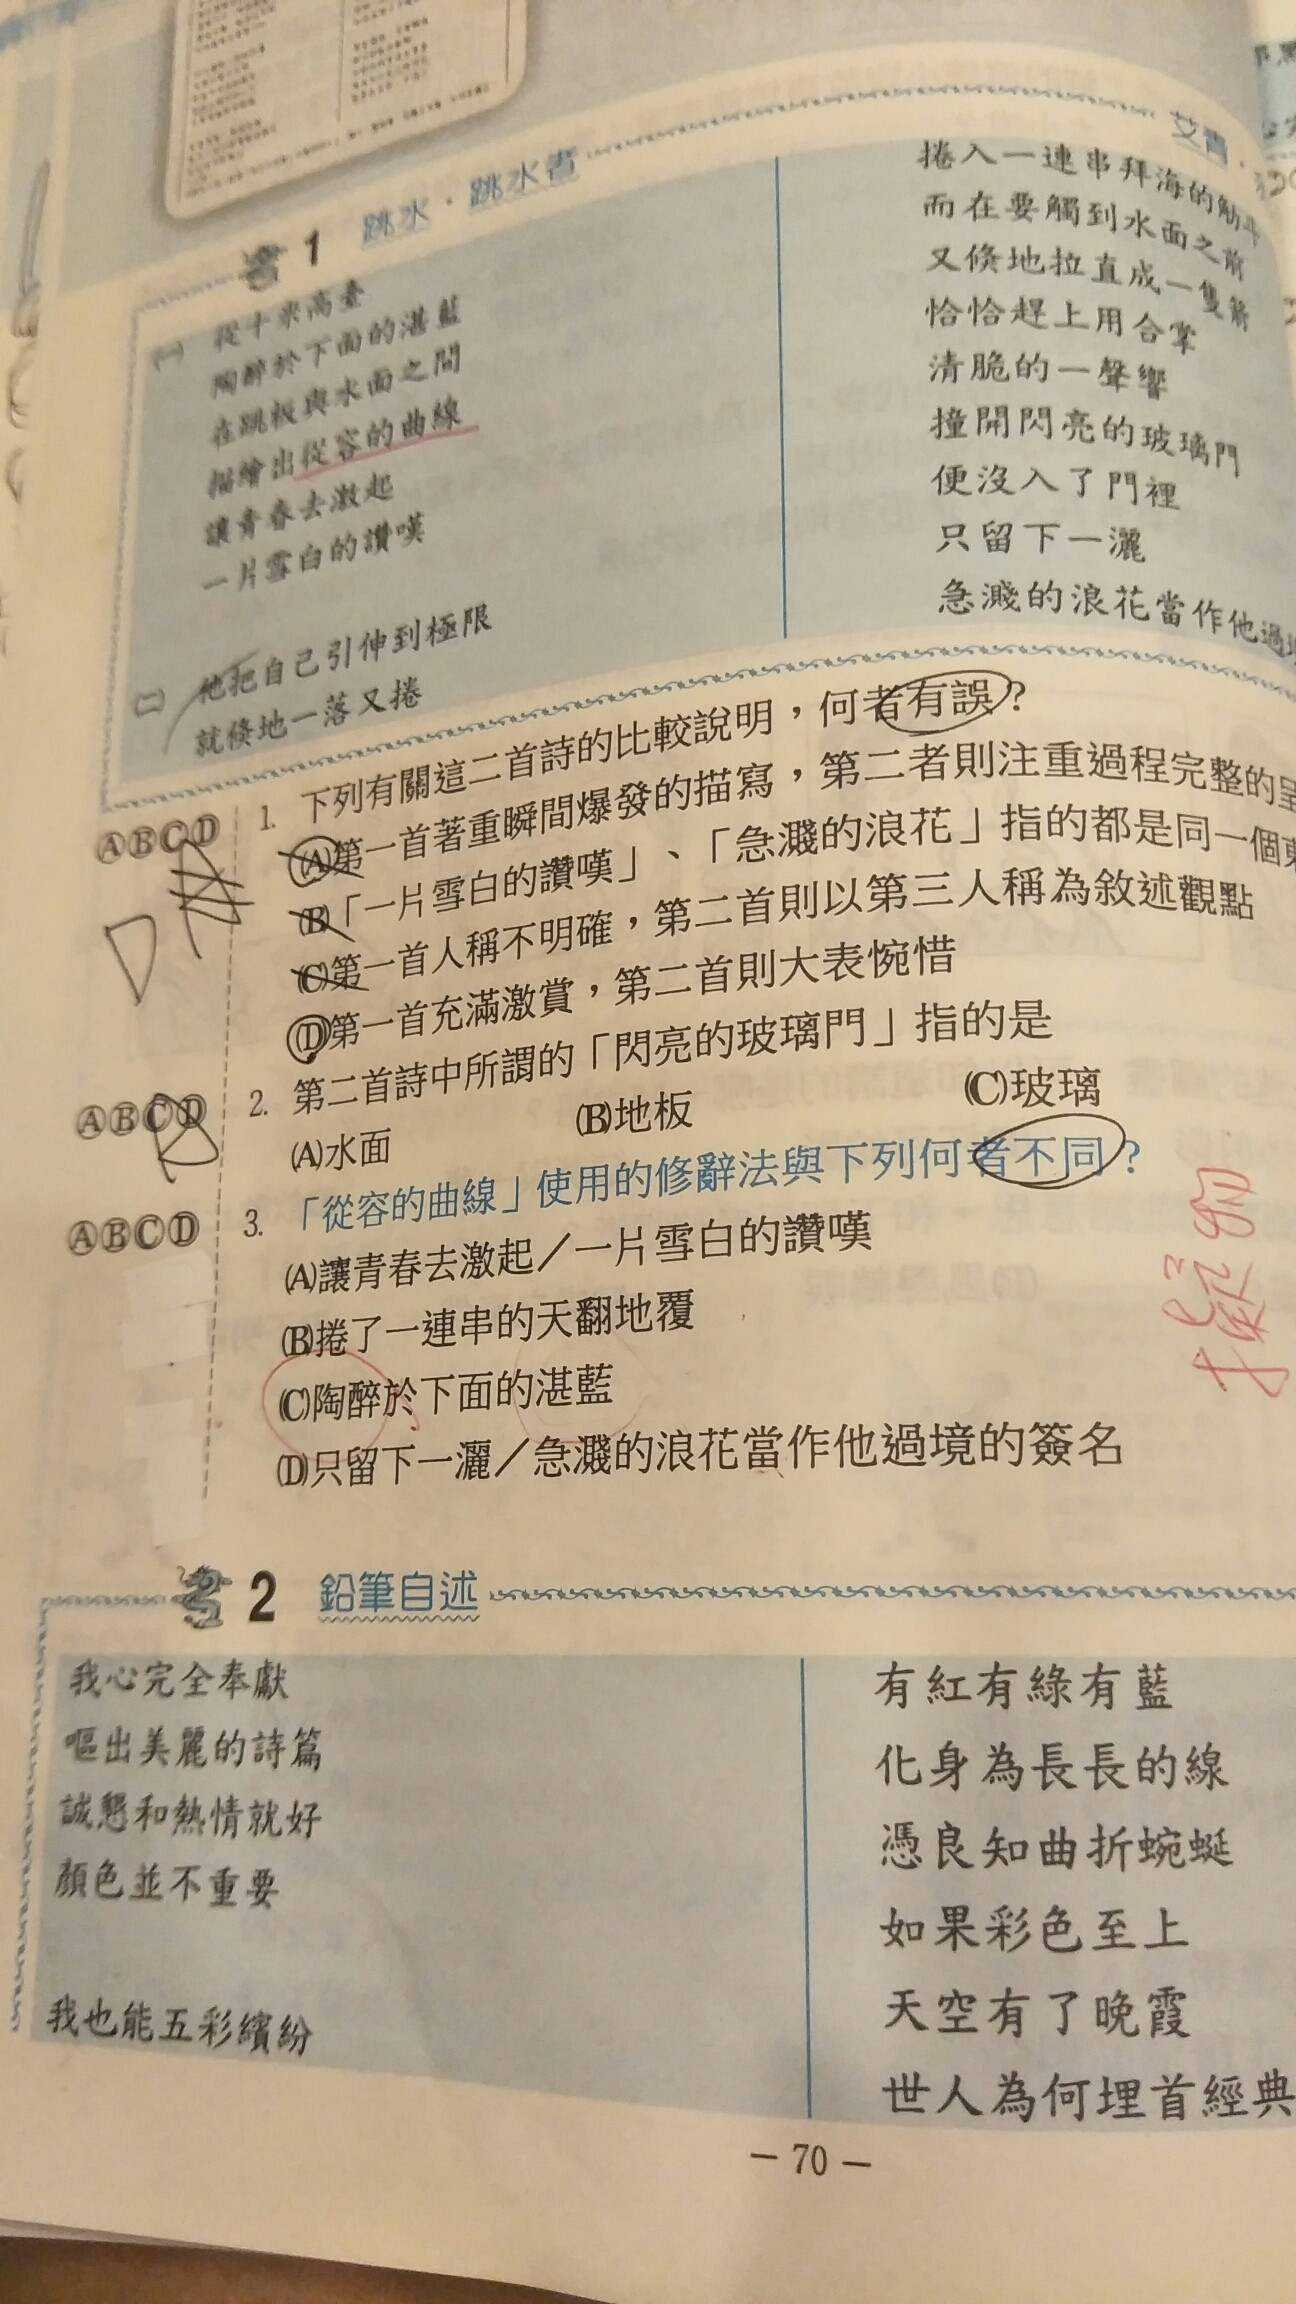 1 跳水·跳水者
艾青·
(一) 從十米高臺
陶醉於下面的湛藍
在跳板與水面之間
描繪出從容的曲線
讓青春去激起
一片雪白的讚嘆
(二) 他把自己引伸到極限
就倏地一落又捲
捲入一連串拜海的觔斗
而在要觸到水面之前
又倏地拉直成一隻箭
恰恰趕上用合掌
清脆的一聲響
撞開閃亮的玻璃門
便沒入了門裡
只留下一灑
急濺的浪花當作他過境
ⒶⒷⒸⒹ 1. 下列有關這二首詩的比較說明，何者有誤？
(A)第一首著重瞬間爆發的描寫，第二者則注重過程完整的呈
(B)「一片雪白的讚嘆」、「急濺的浪花」指的都是同一個東
(C)第一首人稱不明確，第二首則以第三人稱為敘述觀點
(D)第一首充滿激賞，第二首則大表惋惜
D
ⒶⒷⒸⒹ 2. 第二首詩中所謂的「閃亮的玻璃門」指的是
(A)水面 (B)地板 (C)玻璃
A
ⒶⒷⒸⒹ 3. 「從容的曲線」使用的修辭法與下列何者不同？
(A)讓青春去激起／一片雪白的讚嘆
(B)捲了一連串的天翻地覆
(C)陶醉於下面的湛藍
(D)只留下一灑／急濺的浪花當作他過境的簽名
2 鉛筆自述
我心完全奉獻
嘔出美麗的詩篇
誠懇和熱情就好
顏色並不重要
我也能五彩繽紛
有紅有綠有藍
化身為長長的線
憑良知曲折蜿蜒
如果彩色至上
天空有了晚霞
世人為何埋首經典
－70－